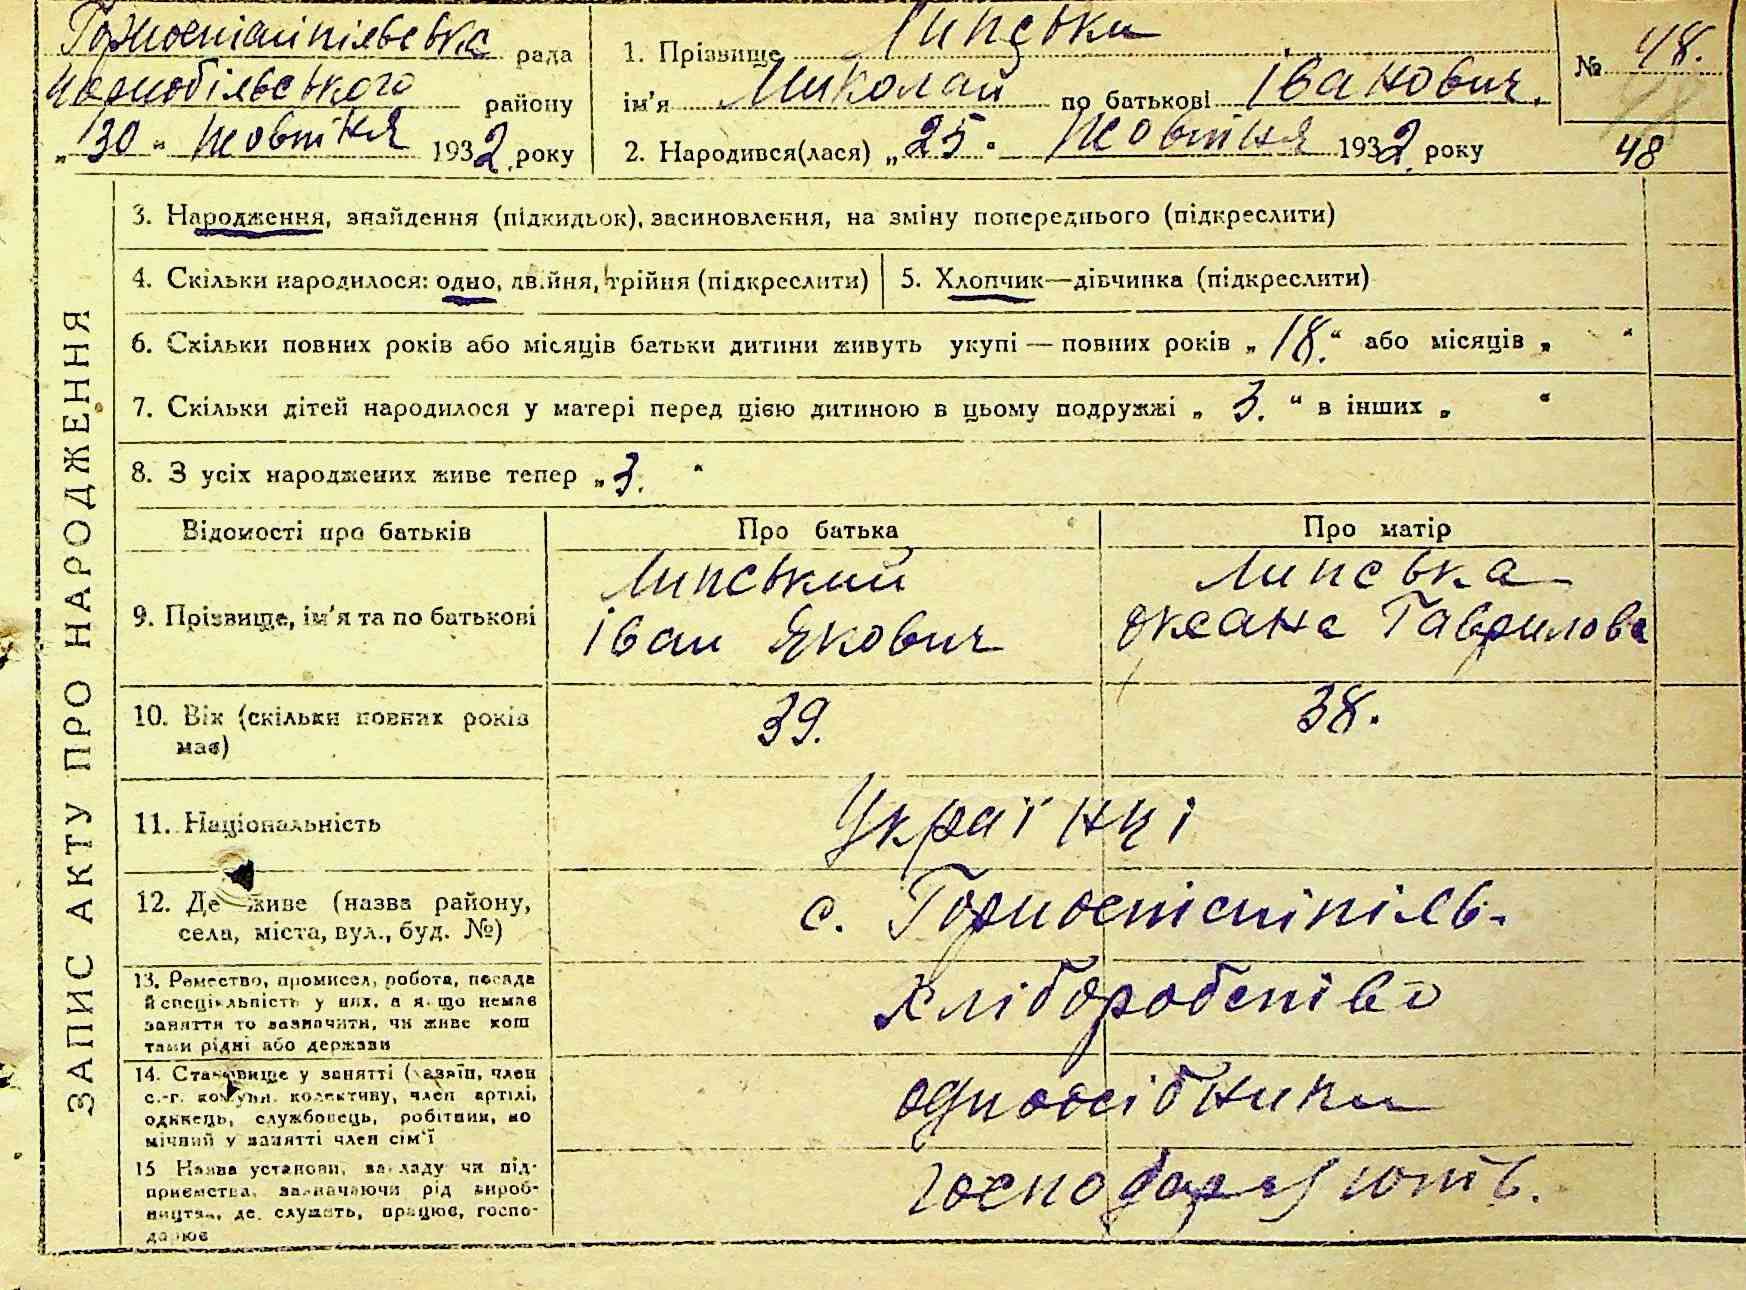 Горностайпільська рада
Чорнобільського району
„30" Жовтня 1932 року
1. Прізвище Липськи
ім'я Миколай по батькові Іванович.
2. Народився(лася) „25" Жовтня 1932 року
№ 48.
48
3. Народження, знайдення (підкидьок), засиновлення, на зміну попереднього (підкреслити)
4. Скільки народилося: одно, двійня, трійня (підкреслити)
5. Хлопчик—дівчинка (підкреслити)
6. Скільки повних років або місяців батьки дитини живуть укупі — повних років „18." або місяців „ "
7. Скільки дітей народилося у матері перед цією дитиною в цьому подружжі „3." в інших „ "
8. З усіх народжених живе тепер „3. "
ЗАПИС АКТУ ПРО НАРОДЖЕННЯ
Відомості про батьків
Про батька
Про матір
9. Прізвище, ім'я та по батькові
Липський
Іван Якович
Липська
Оксана Гаврилова
10. Вік (скільки повних років
має)
39.
38.
11. Національність
Українці
12. Де живе (назва району,
села, міста, вул., буд. №)
с. Горностайпіль.
13. Ремество, промисел, робота, посада
й спеціяльність у них, а якщо немає
заняття то зазначити, чи живе кош
тами рідні або держави
Хліборобство
14. Становище у занятті (хазяїн, член
с.-г. комуни, колективу, член артілі,
одинець, службовець, робітник, по
мічний у занятті член сім'ї
одноосібники
15 Назва установи, закладу чи під-
приємства, зазначаючи рід вироб-
ництва, де служить, працює, госпо-
дарює
господарюють.